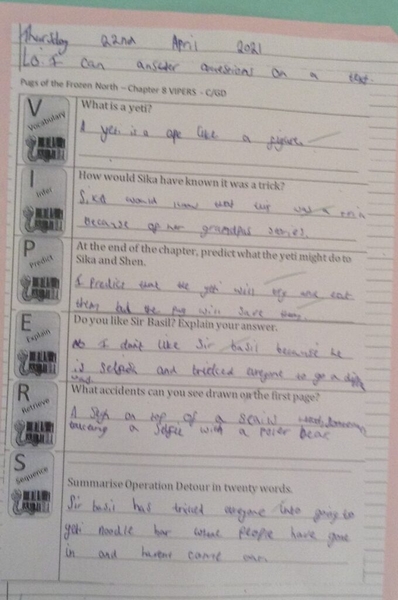 Thursday 22nd April 2021
L.O. I can answer questions on a text.
Pugs of the Frozen North – Chapter 8 VIPERS - C/GD
V
Vocabulary
What is a yeti?
A yeti is a ape like a
I
Infer
How would Sika have known it was a trick?
Sika would know that was a
Because of her grandpas stories.
P
Predict
At the end of the chapter, predict what the yeti might do to
Sika and Shen.
I Predict that the yeti will try and eat
them but the pug will save them
E
Explain
Do you like Sir Basil? Explain your answer.
No I don't like Sir basil because he
is and tricked everyone to go a
way
R
Retrieve
What accidents can you see drawn on the first page?
A on top of a
a selfie with a Poler Bear
S
Sequence
Summarise Operation Detour in twenty words.
Sir basil has triced everyone into going to
yeti noodle bar where people have gone
in and havent came